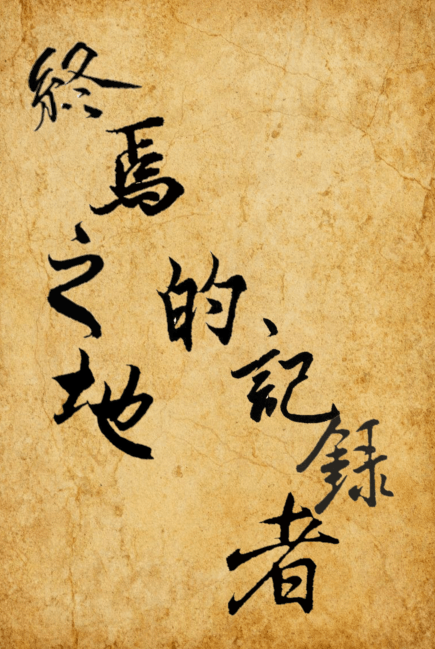 終焉之地
的記錄者